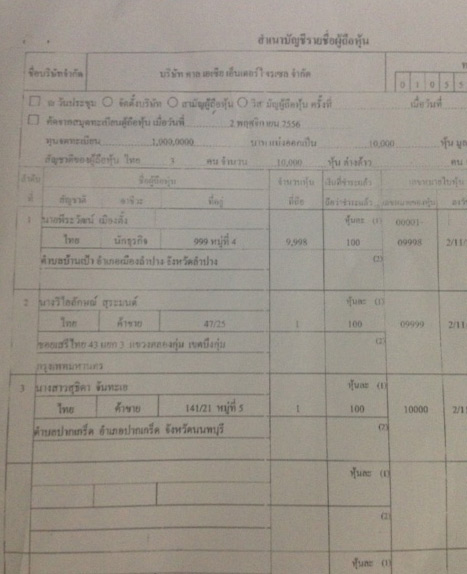 สำเนาบัญชีรายชื่อผู้ถือหุ้น
ชื่อบริษัทจำกัด บริษัท ดาต เอเชีย เอ็นเตอร์ไ จำกัด 0 1 0 5 5
ณ วันประชุม จัดตั้งบริษัท สามัญผู้ถือหุ้น วิสามัญผู้ถือหุ้น ครั้งที่ เมื่อวันที่
คัดจากสมุดทะเบียนผู้ถือหุ้น เมื่อวันที่ 2 พฤศจิกายน 2556
ทุนจดทะเบียน 1,000,0000 บาท แบ่งออกเป็น 10,000 หุ้น มูล
สัญชาติของผู้ถือหุ้น ไทย 3 คน จำนวน 10,000 หุ้น ต่างด้าว คน
ลำดับ ชื่อผู้ถือหุ้น จำนวนหุ้น เงินที่ชำระแล้ว เลขหมายใบหุ้น
ที่ สัญชาติ อาชีพ ที่อยู่ ที่ถือ ถือว่าชำระแล้ว เลขหมายของหุ้น ลงวั
1 นายพีระวัฒน์ เมืองตั้ง หุ้นละ (1) 00001-
ไทย นักธุรกิจ 999 หมู่ที่ 4 9,998 100 09998 2/11/
ตำบลบ้านเป้า อำเภอเมืองลำปาง จังหวัดลำปาง (2)
2 นางวิไลลักษณ์ สุระมนต์ หุ้นละ (1)
ไทย ค้าขาย 47/25 1 100 09999 2/11
ซอยเสรีไทย 43 แยก 3 แขวงคลองกุ่ม เขตบึงกุ่ม (2)
กรุงเทพมหานคร
3 นางสาวสุชิดา จันทะเอ หุ้นละ (1)
ไทย ค้าขาย 141/21 หมู่ที่ 5 1 100 10000 2/1
ตำบลปากเกร็ด อำเภอปากเกร็ด จังหวัดนนทบุรี (2)
หุ้นละ (1)
(2)
หุ้นละ (1)